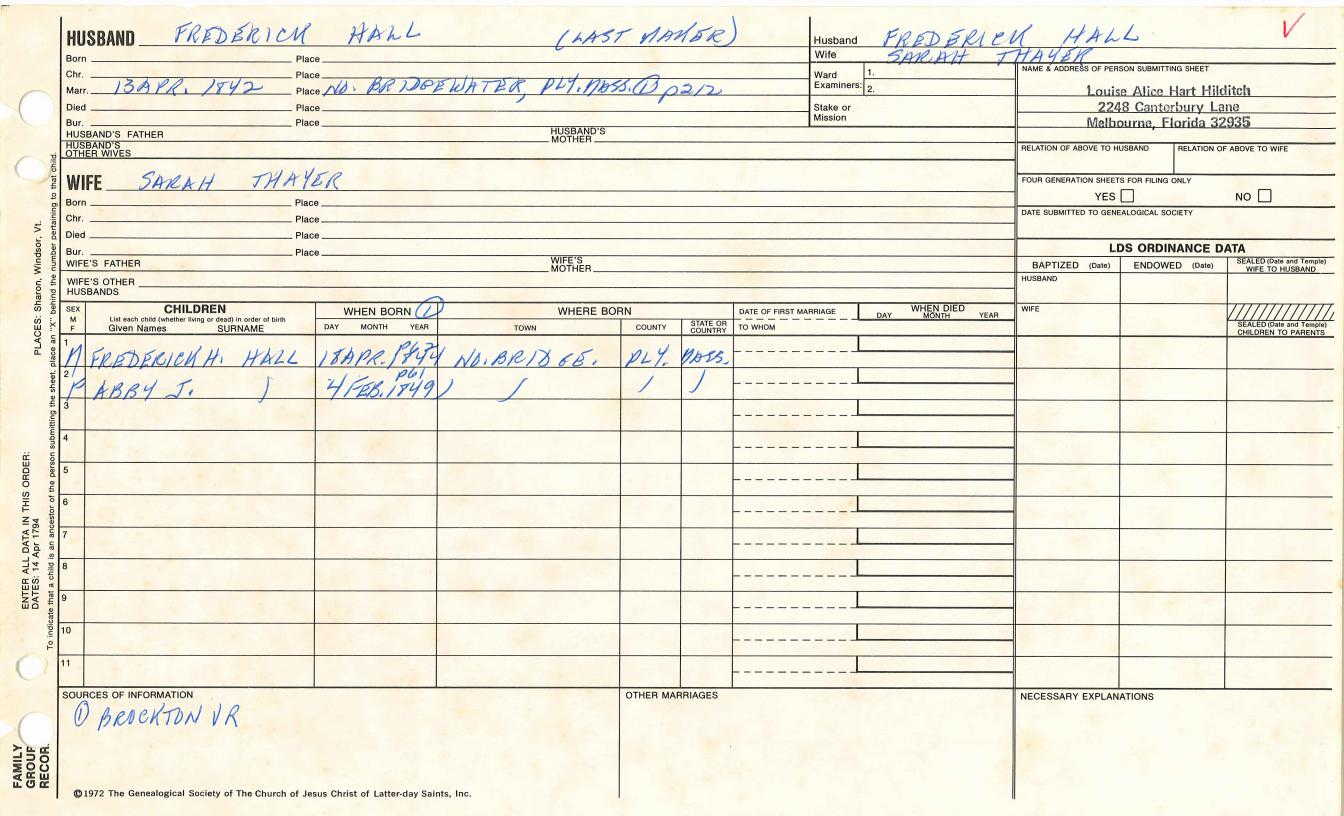 HUSBAND FREDERICK HALL (LAST MAKER)
Born Place
Chr. Place
Marr. 13 APR. 1842 Place NO. BRIDGEWATER, PLY. MASS. ① p212
Died Place
Bur. Place
HUSBAND'S FATHER HUSBAND'S MOTHER
HUSBAND'S OTHER WIVES
Husband FREDERICK HALL
Wife SARAH THAYER
Ward Examiners: 1.
2.
Stake or Mission
NAME & ADDRESS OF PERSON SUBMITTING SHEET
Louise Alice Hart Hilditch
2248 Canterbury Lane
Melbourne, Florida 32935
RELATION OF ABOVE TO HUSBAND RELATION OF ABOVE TO WIFE
FOUR GENERATION SHEETS FOR FILING ONLY
YES NO
DATE SUBMITTED TO GENEALOGICAL SOCIETY
WIFE SARAH THAYER
Born Place
Chr. Place
Died Place
Bur. Place
WIFE'S FATHER WIFE'S MOTHER
WIFE'S OTHER HUSBANDS
LDS ORDINANCE DATA
BAPTIZED (Date) ENDOWED (Date) SEALED (Date and Temple) WIFE TO HUSBAND
HUSBAND
WIFE
SEALED (Date and Temple) CHILDREN TO PARENTS
SEX M F
CHILDREN
List each child (whether living or dead) in order of birth
Given Names SURNAME
WHEN BORN ①
DAY MONTH YEAR
WHERE BORN
TOWN COUNTY STATE OR COUNTRY
DATE OF FIRST MARRIAGE
TO WHOM
WHEN DIED
DAY MONTH YEAR
1 M FREDERICK H. HALL 18 APR. NO. BRIDGE. PLY. MASS.
2 F ABBY J. ) 4 FEB. 1849 p61 ) ) ) )
3
4
5
6
7
8
9
10
11
SOURCES OF INFORMATION
① BROCKTON VR
OTHER MARRIAGES
NECESSARY EXPLANATIONS
©1972 The Genealogical Society of The Church of Jesus Christ of Latter-day Saints, Inc.
FAMILY GROUP RECOR
ENTER ALL DATA IN THIS ORDER:
DATES: 14 Apr 1794
PLACES: Sharon, Windsor, Vt.
To indicate that a child is an ancestor of the person submitting the sheet, place an "X" behind the number pertaining to that child.